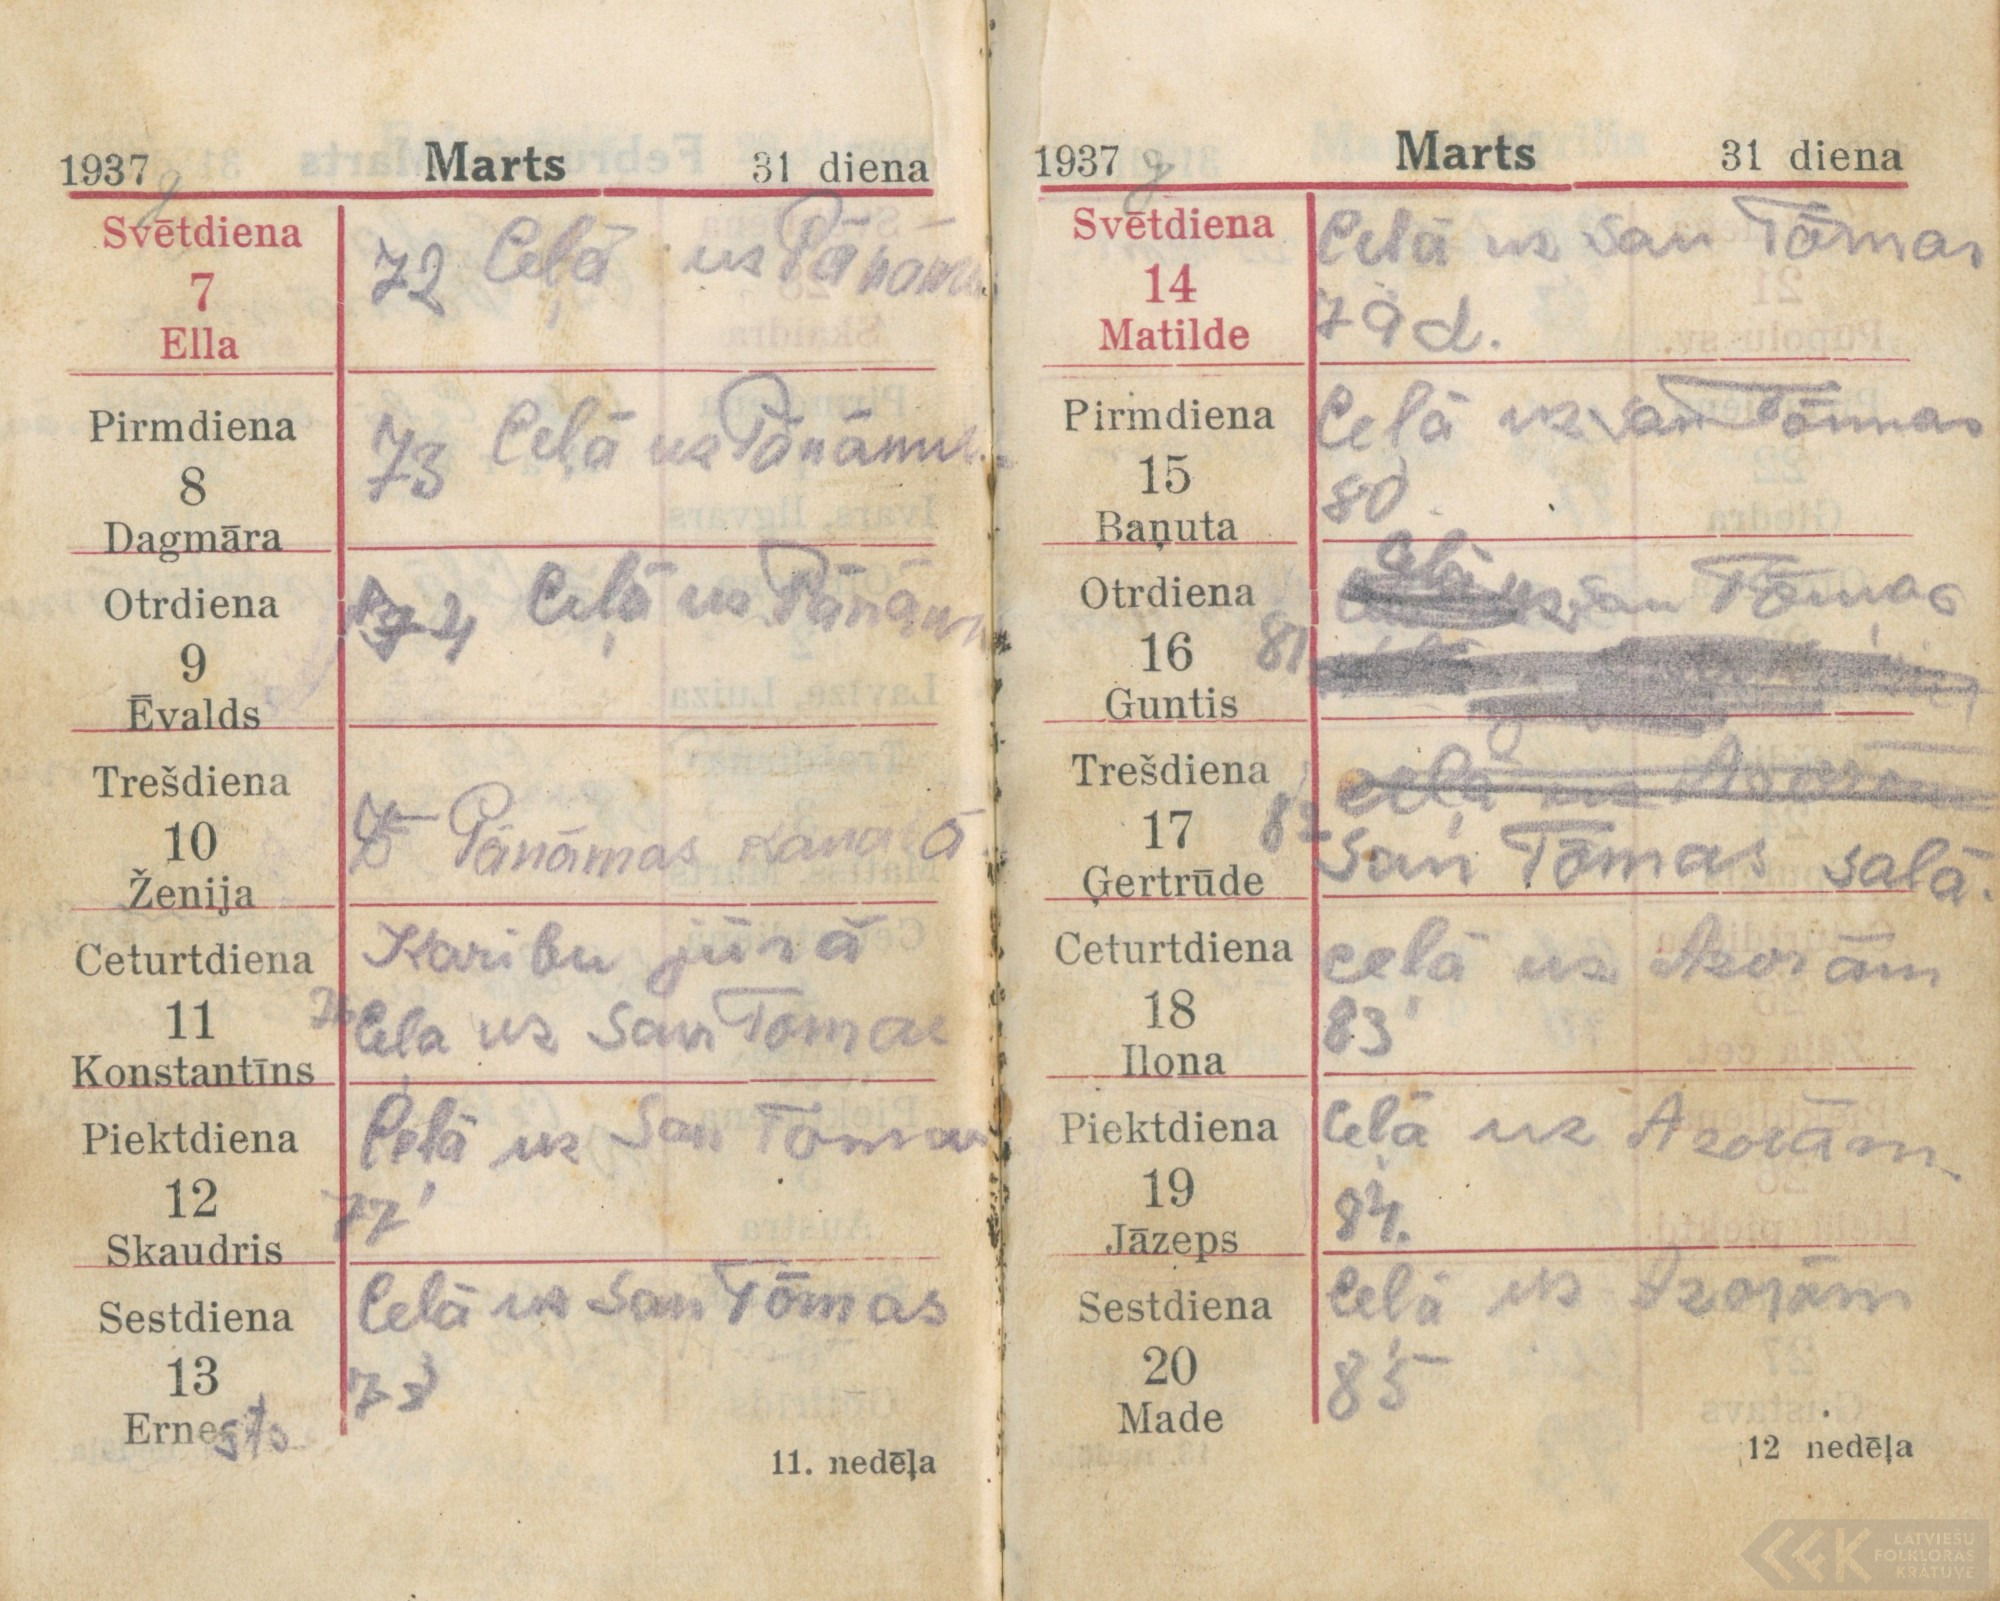 1937 g Marts 31 diena
Svētdiena
7
Ella
72 Ceļā uz Pānāmu
Pirmdiena
8
Dagmāra
73 Ceļā uz Pānāmu.
Otrdiena
9
Ēvalds
74 Ceļā uz Pānāmu
Trešdiena
10
Ženija
75 Pānāmas kanalā.
Ceturtdiena
11
Konstantīns
Karibu jūrā
76 Ceļa uz San Tomas
Piektdiena
12
Skaudris
Ceļā uz San Tomas
77
Sestdiena
13
Ernests
Celā uz San Tōmas
78
11. nedēļa
1937 g Marts 31 diena
Svētdiena
14
Matilde
Celā uz San Tōmas
79 d.
Pirmdiena
15
Baņuta
Celā uz San Tōmas
80.
Otrdiena
16
Guntis
Celā uz San Tōmas
81.
Trešdiena
17
Ģertrūde
ceļā uz
82 San Tōmas salā.
Ceturtdiena
18
Ilona
celā uz Azorām
83
Piektdiena
19
Jāzeps
Celā uz Azorām.
84.
Sestdiena
20
Made
Celā uz Azorām
85
12 nedēļa
LATVIEŠU
FOLKLORAS
KRĀTUVE